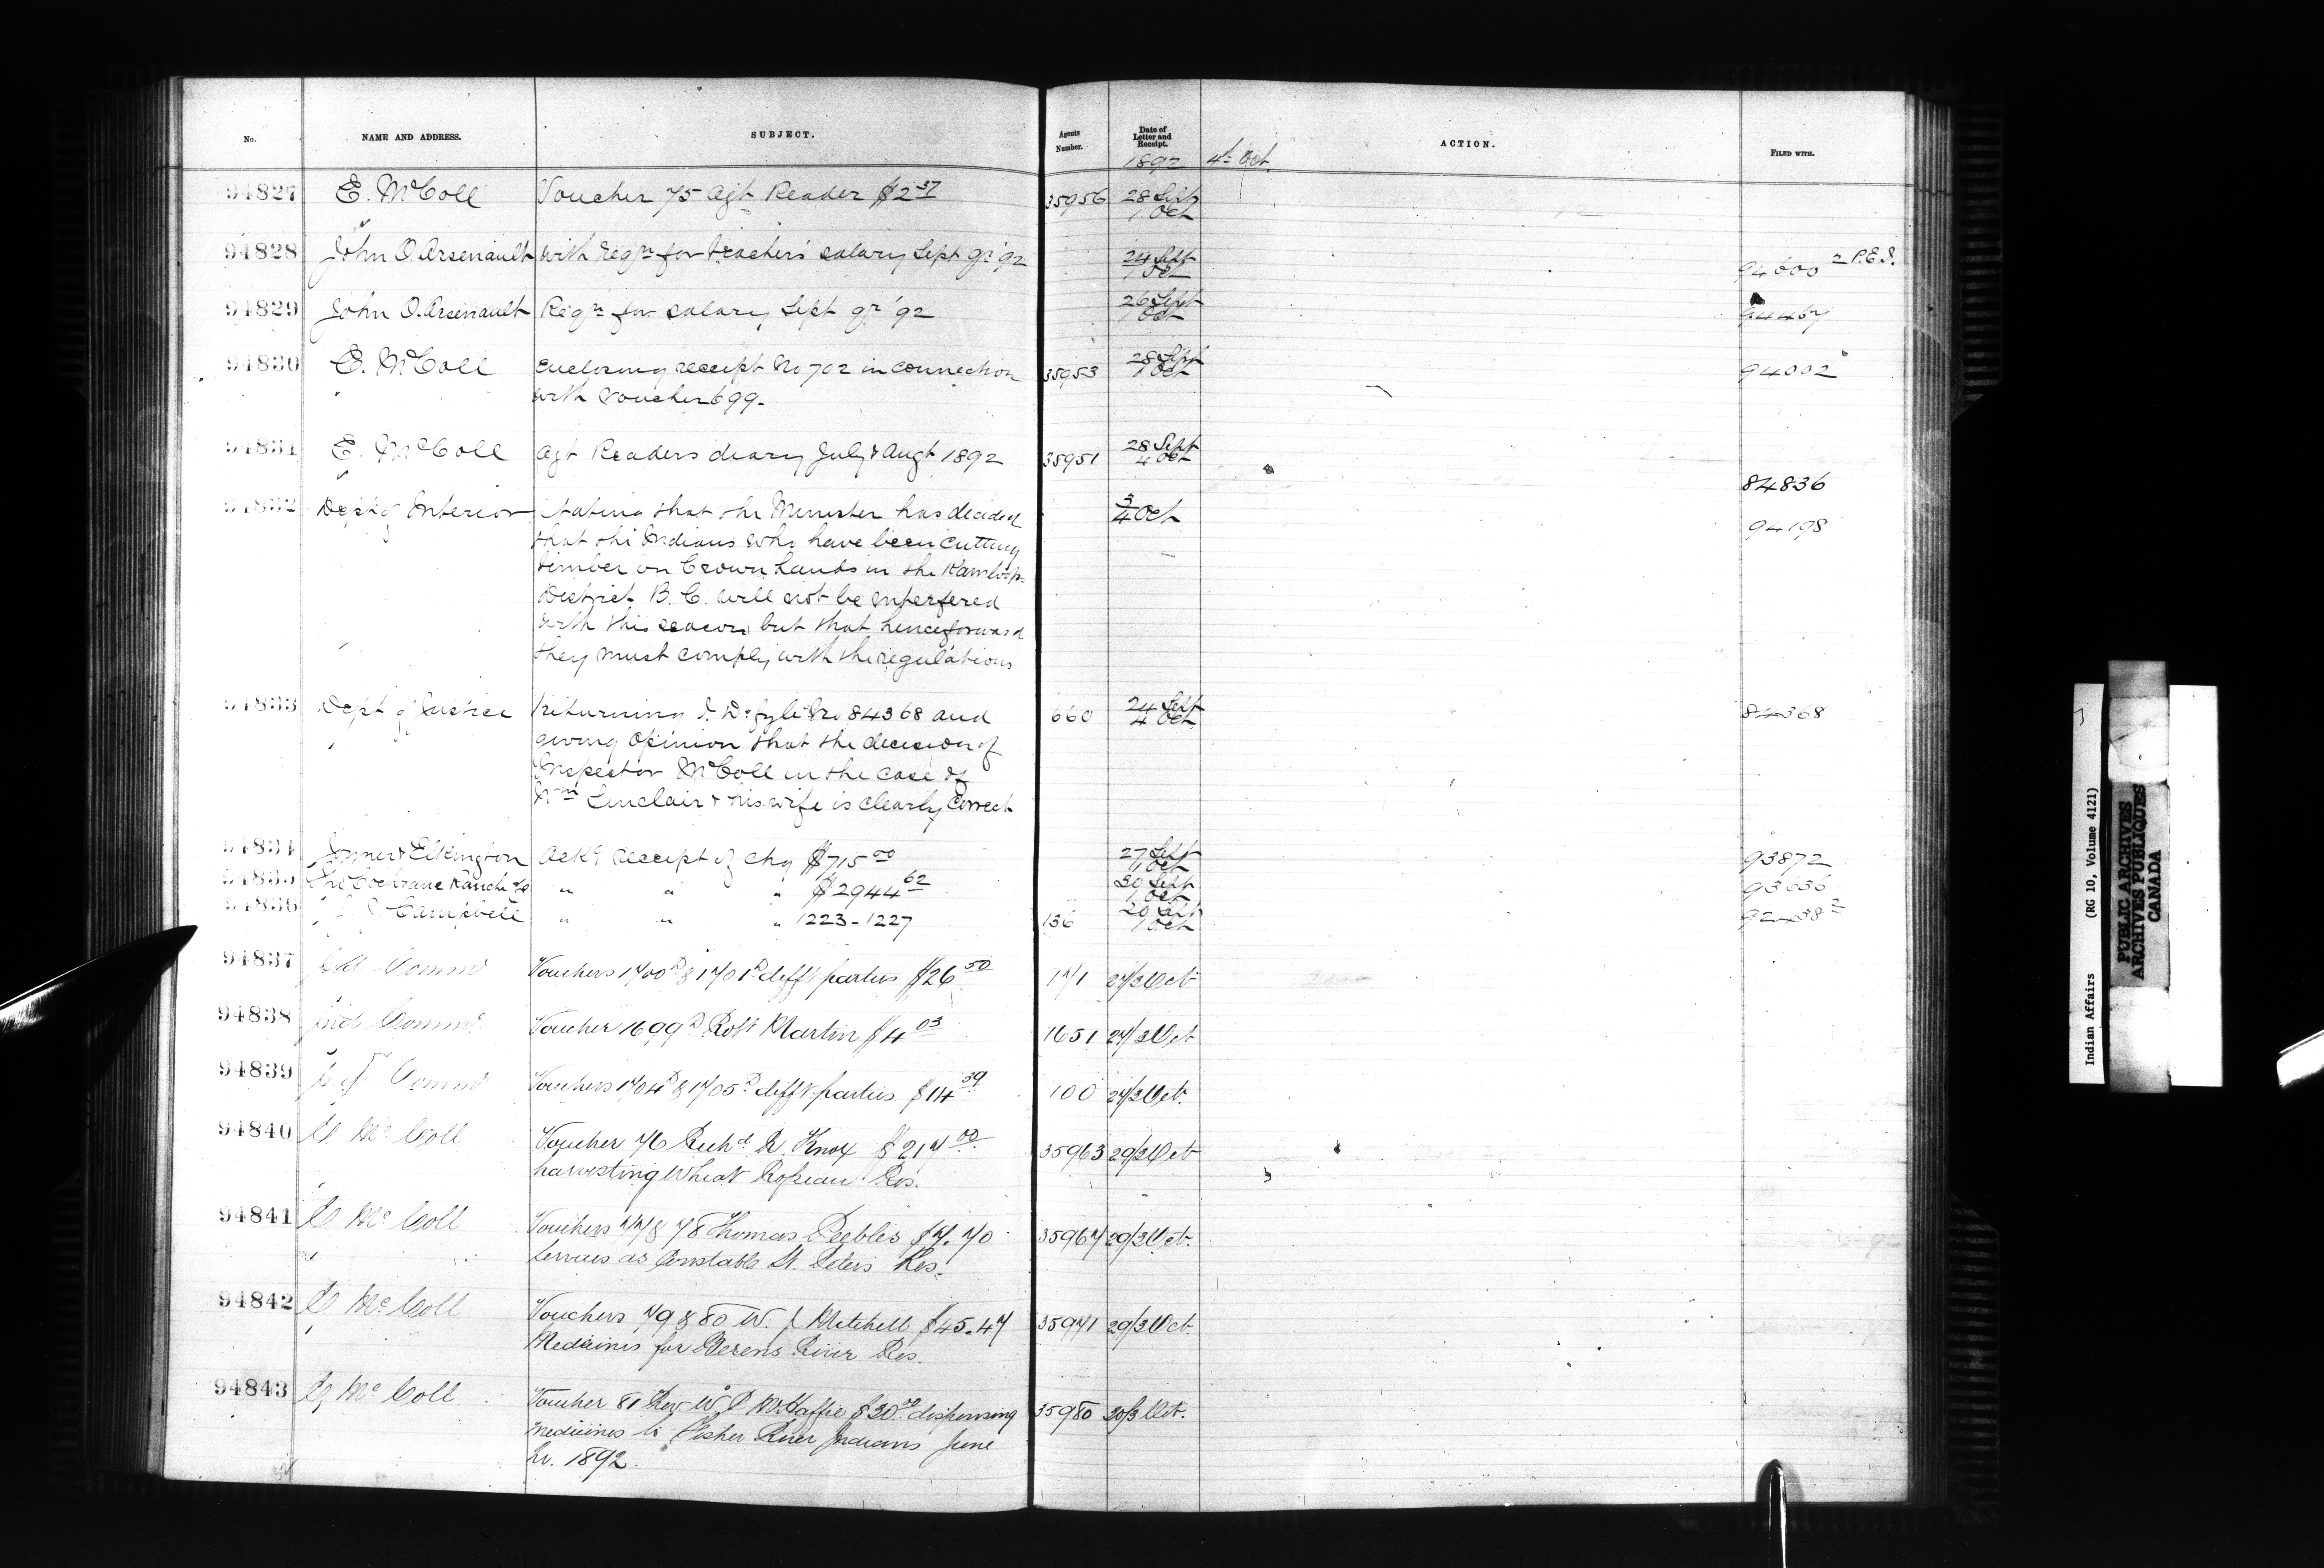 No. NAME AND ADDRESS. SUBJECT. Agents Number. Date of Letter and Receipt. ACTION. FILED WITH.
1892 4th Oct.
94827 E. McColl Voucher 75 Agt Reader $2.37 35956 28 Sept 1 Oct
94828 John O. Arsenault With reqn for teachers' salary Sept qr '92 24 Sept 1 Oct 94600 2 P.E.I.
94829 John O. Arsenault Reqn for salary Sept qr '92 26 Sept 1 Oct 94467
94830 E. McColl Enclosing receipt No 702 in connection 35953 28 Sept 1 Oct 94002
with voucher 699.
94831 E. McColl Agt Readers diary July & Augt 1892 35951 28 Sept 4 Oct
84836
94832 Dept of Interior Stating that the Minister has decided 3/4 Oct 94198
that the Indians who have been cutting
timber on Crown Lands in the Kamloops
District B.C. will not be interfered
with this season but that henceforward
they must comply with the regulations
94833 Dept of Justice Returning I. D. fyle No 84368 and 660 24 Sept 4 Oct 84368
giving opinion that the decision of
Inspector McColl in the case of
Wm Sinclair & his wife is clearly correct
94834 Joyner & Elkington Ackg receipt of chq $715.00 27 Sept 1 Oct 93872
94835 The Cochrane Ranch Co " " " $2944.62 30 Sept 1 Oct 93636
94836 Campbell " " " 1223-1227 136 20 Sept 1 Oct
94837 Ind Commr Vouchers 1700D & 1701D difft parties $26.50 171 27/3 Oct
94838 Ind Commr Voucher 1699D Robt Martin $4.03 1651 27/3 Oct
94839 Ind Commr Vouchers 1704D & 1705D difft parties $14.39 100 27/3 Oct.
94840 E McColl Voucher 76 Richd R. Knox $217.00 35963 29/3 Oct
harvesting wheat Roseau Res.
94841 E McColl Vouchers 77 & 78 Thomas Peebles $7.70 35967 29/3 Oct.
Services as Constable St. Peters Res.
94842 E McColl Vouchers 79 & 80 W. J. Mitchell $45.47 35971 29/3 Oct.
Medicines for Berens River Res.
94843 E McColl Voucher 81 Rev W. P. McHaffie $30.00 dispensing 35980 30/3 Oct.
medicines to Fisher River Indians June
Qr. 1892.
Indian Affairs (RG 10, Volume 4121)
PUBLIC ARCHIVES
ARCHIVES PUBLIQUES
CANADA